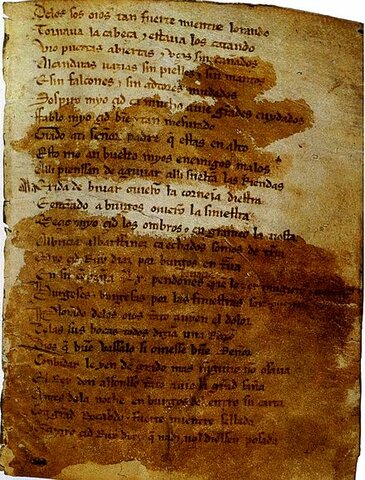 Delos sos oios tan fuerte mientre lorando
Tornaua la cabeça y estaua los catando
Vio puertas abiertas y vços sin cañados
Alcandaras uazias sin pielles y sin mantos
E sin falcones y sin adtores mudados
Sospiro myo çid ca mucho auie grandes cuydados
Fablo myo çid bien y tan mesurado
Grado ati señor padre q estas en alto
Esto me an buelto myos enemigos malos
Alli pienssan de aguijar alli sueltan las Riendas
Ala Exida de biuar ouieron la corneja diestra
Entrando a burgos ouieron la siniestra
Meçio myo çid los ombros y en grameo la tiesta
Albricia albarffanez ca echados somos de tierra
Myo çid Ruy diaz por burgos en traua
En su conpaña .Lx. pendones
Burgeses y burgesas por las finiestras son
Plorando delos oios tanto auyen el dolor
Delas sus bocas todos dizian una Razon
Dios q buen vassalo si ouiesse buen Señor
Conbidar le yen de grado mas ninguno no osaua
El Rey don alfonsso tanto auie la grand saña
Antes dela noche en burgos del entro su carta
Con grand Recabdo y fuerte mientre sellada
Que a myo çid Ruy diaz q nadi nol diessen posada